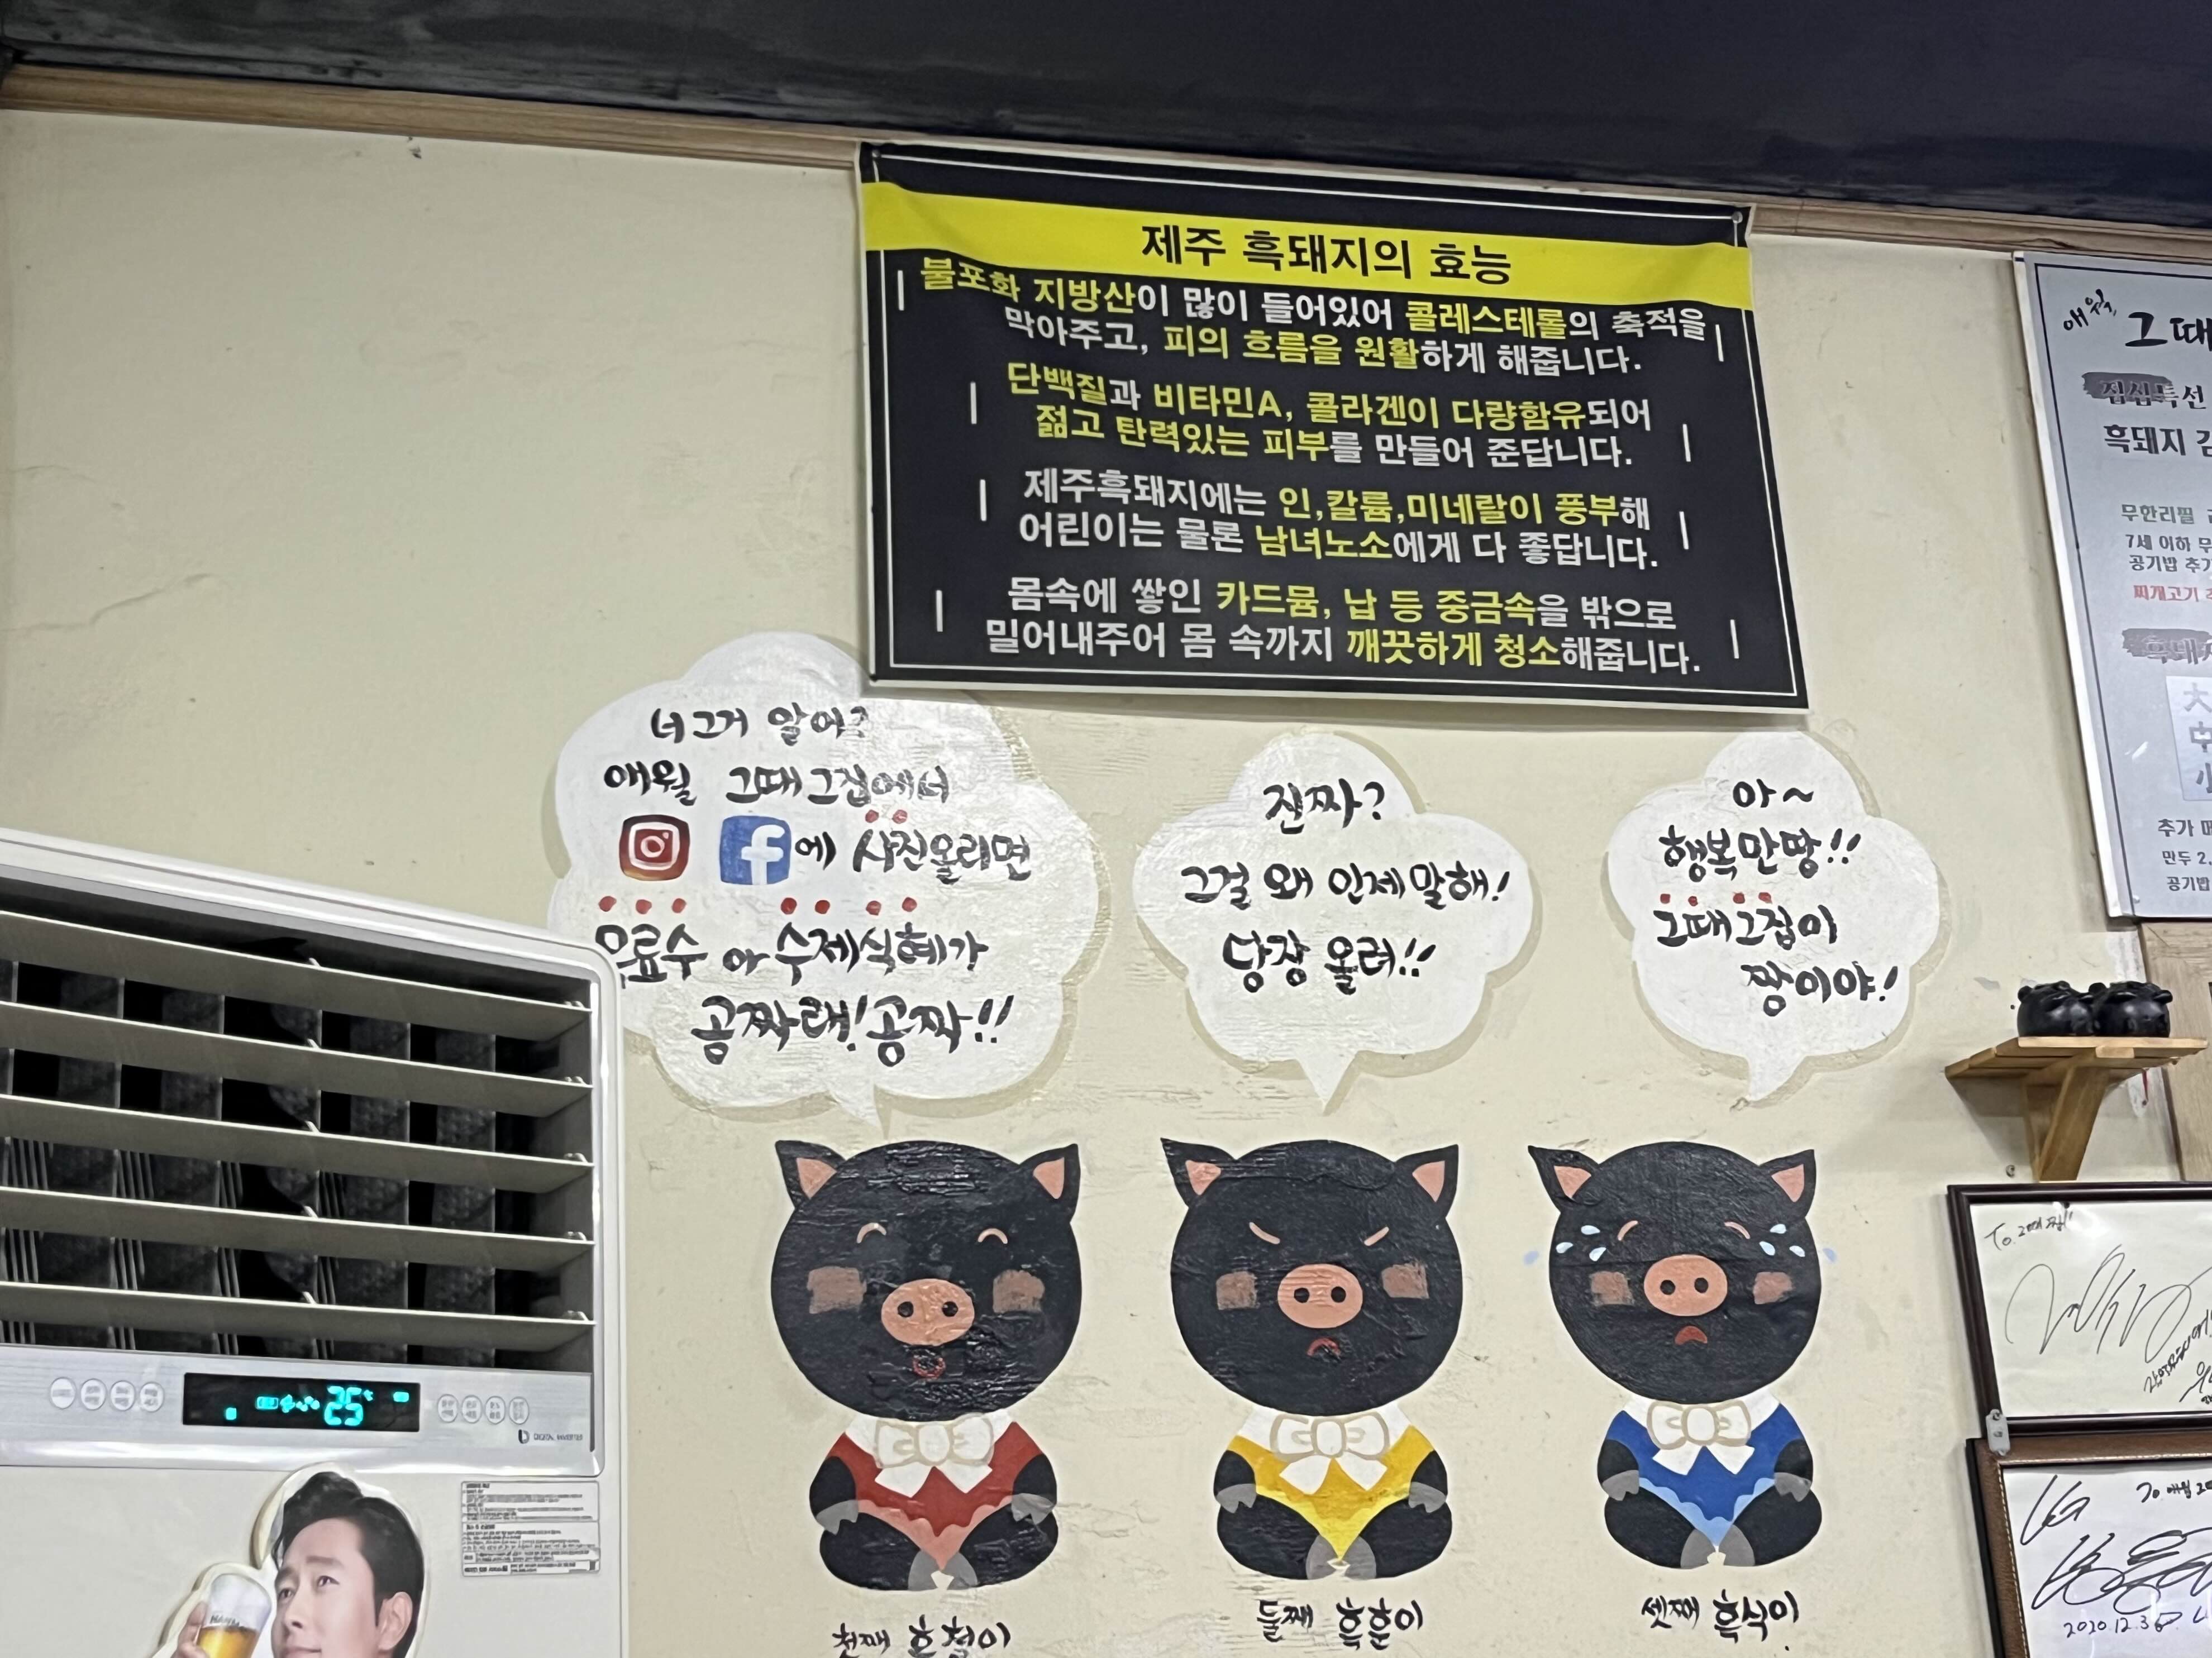 제주 흑돼지의 효능
불포화 지방산이 많이 들어있어 콜레스테롤의 축적을
막아주고, 피의 흐름을 원활하게 해줍니다.
단백질과 비타민A, 콜라겐이 다량함유되어
젊고 탄력있는 피부를 만들어 준답니다.
제주흑돼지에는 인,칼륨,미네랄이 풍부해
어린이는 물론 남녀노소에게 다 좋답니다.
몸속에 쌓인 카드뮴, 납 등 중금속을 밖으로
밀어내주어 몸 속까지 깨끗하게 청소해줍니다.
너그거 알어?
애월 그때그집에서
에 사진올리면
음료수 아 수제식혜가
공짜래! 공짜!!
진짜?
그걸 왜 인제말해!
당장 올려!!
아~
행복만땅!!
그때그집이
짱이야!
첫째
둘째 흑훈이
셋째 흑식이
25
DIGITAL INVERTER
애월
그때
흑돼지
무한리필
7세 이하
공기밥 추가
찌개고기
大
中
小
추가
만두 2,
공기밥
To. 그때
To. 애월
2020.12.